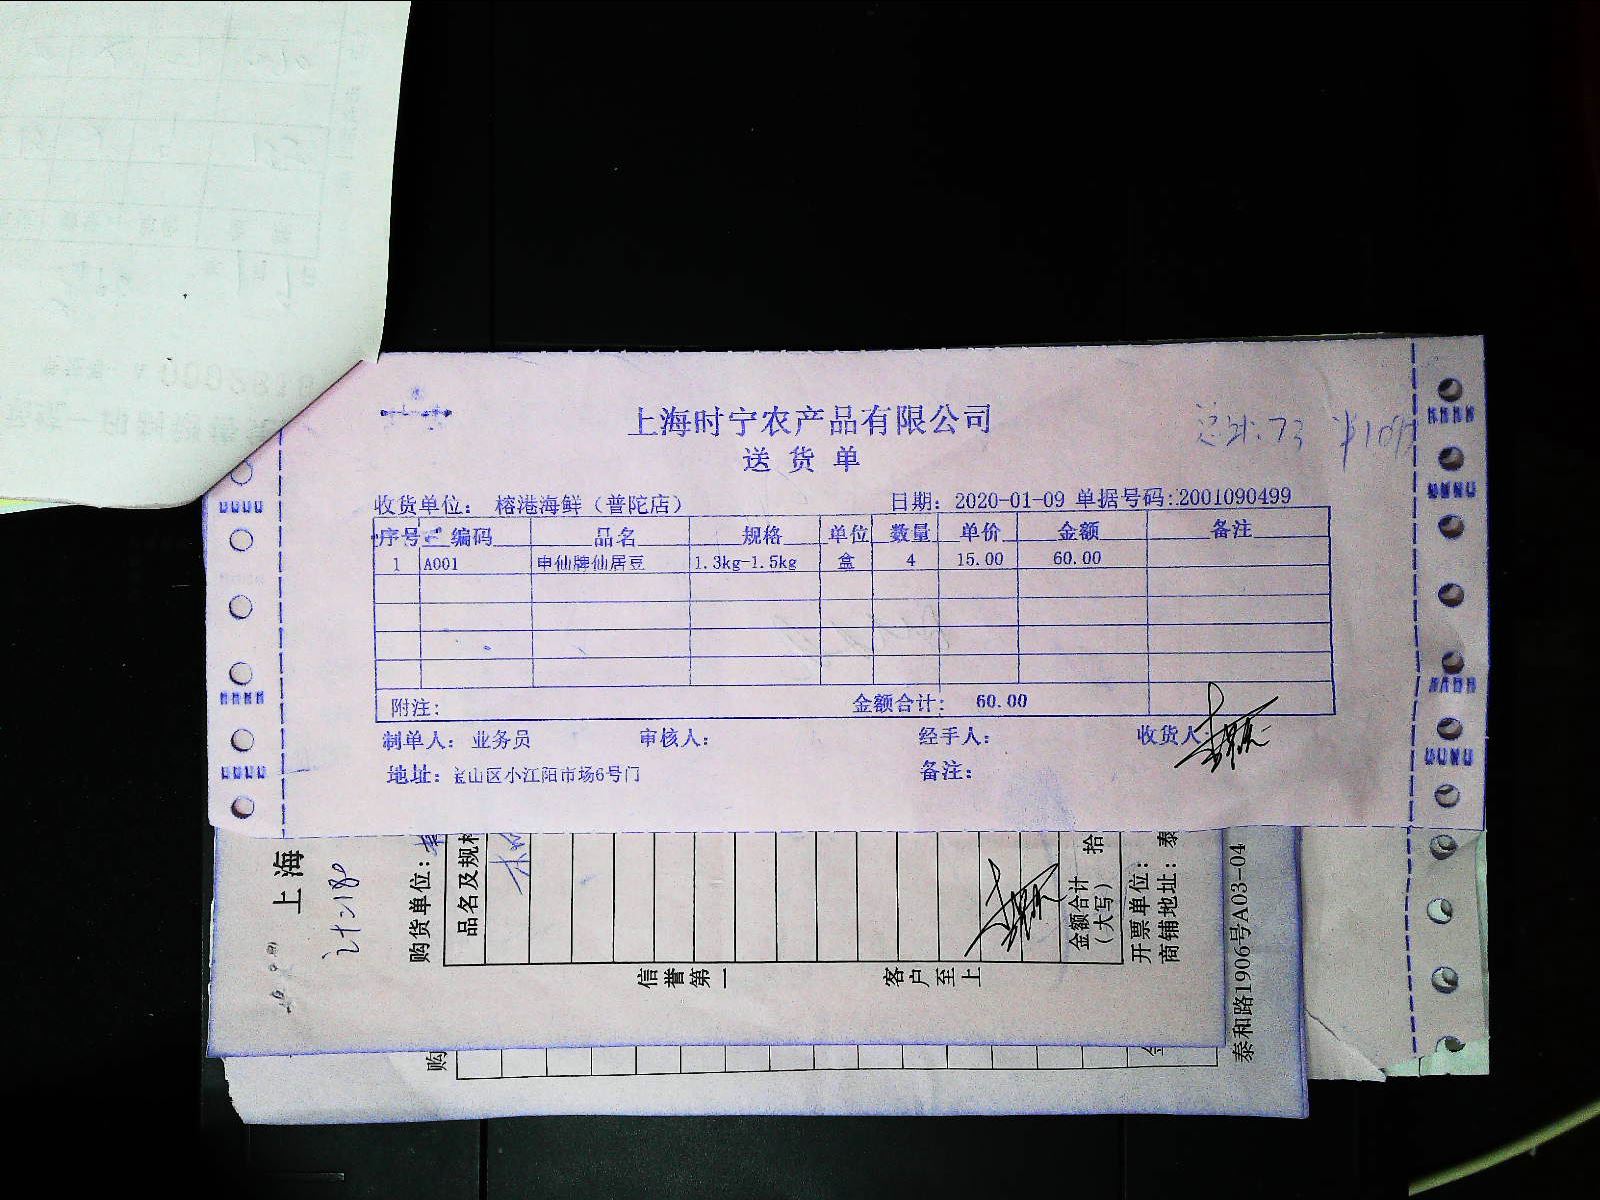 上海时宁农产品有限公司
送货单
收货单位: 榕港海鲜（普陀店） 日期: 2020-01-09 单据号码:2001090499
序号 编码 品名 规格 单位 数量 单价 金额 备注
1 A001 申仙牌仙居豆 1.3kg-1.5kg 盒 4 15.00 60.00
附注: 金额合计: 60.00
制单人: 业务员 审核人: 经手人: 收货人
地址: 宝山区小江阳市场6号门 备注:
上海
购货单位:
品名及规格
信誉第一 客户至上
金额合计
（大写）
拾
开票单位:
商铺地址: 泰
泰和路1906号A03-04
购